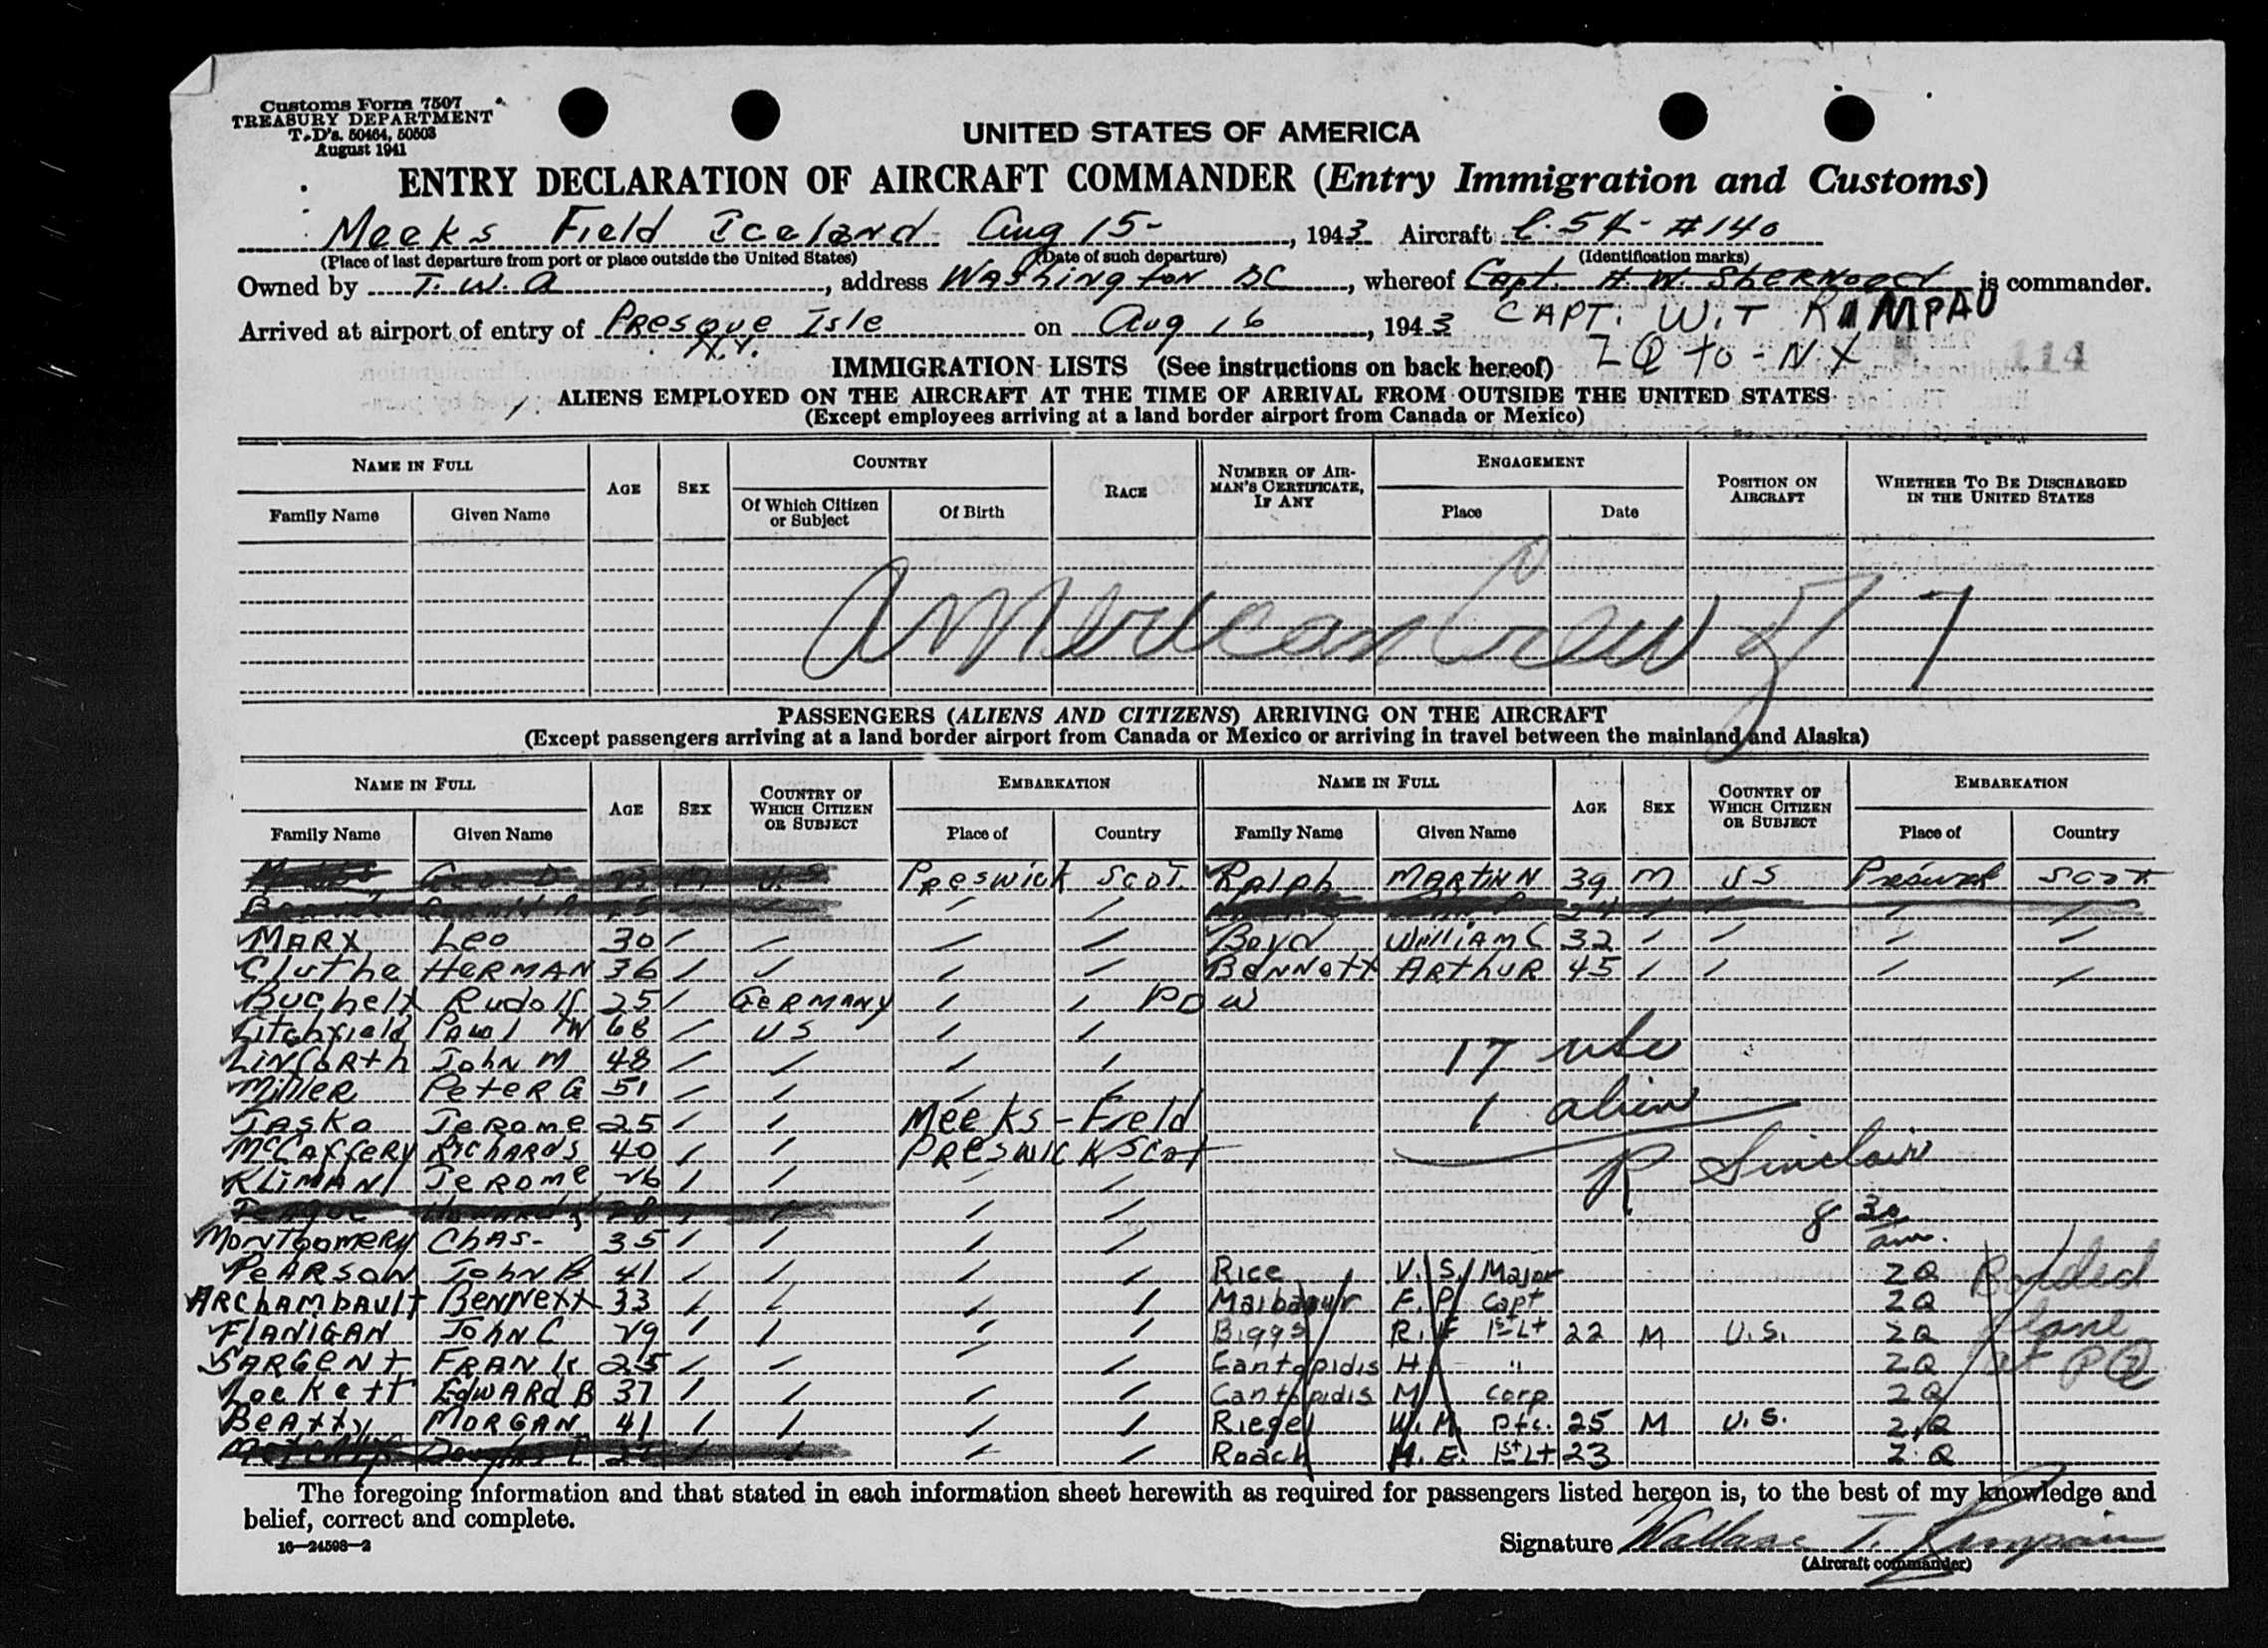 Customs Form 7507
TREASURY DEPARTMENT
T. D's. 50464, 50503
August 1941
UNITED STATES OF AMERICA
ENTRY DECLARATION OF AIRCRAFT COMMANDER (Entry Immigration and Customs)
Meeks Field Iceland Aug 15-, 1943 Aircraft C-54-#140
(Place of last departure from port or place outside the United States) (Date of such departure) (Identification marks)
Owned by T. W. A, address Washington DC, whereof Capt. H. W. Sherwood is commander.
Arrived at airport of entry of Presque Isle on Aug 16, 1943 CAPT. W.T RAMPAU
N.Y. ZQ to - NX
114
IMMIGRATION LISTS (See instructions on back hereof)
ALIENS EMPLOYED ON THE AIRCRAFT AT THE TIME OF ARRIVAL FROM OUTSIDE THE UNITED STATES
(Except employees arriving at a land border airport from Canada or Mexico)
NAME IN FULL AGE SEX COUNTRY RACE NUMBER OF AIRMAN'S CERTIFICATE, IF ANY ENGAGEMENT POSITION ON AIRCRAFT WHETHER TO BE DISCHARGED IN THE UNITED STATES
Family Name Given Name Of Which Citizen or Subject Of Birth Place Date
American Crew 7
PASSENGERS (ALIENS AND CITIZENS) ARRIVING ON THE AIRCRAFT
(Except passengers arriving at a land border airport from Canada or Mexico or arriving in travel between the mainland and Alaska)
NAME IN FULL AGE SEX COUNTRY OF WHICH CITIZEN OR SUBJECT EMBARKATION NAME IN FULL AGE SEX COUNTRY OF WHICH CITIZEN OR SUBJECT EMBARKATION
Family Name Given Name Place of Country Family Name Given Name Place of Country
Geo D M U.S. Preswick Scot. Ralph MARTINN 39 M US Preswick Scot
MARX Leo 30 Boyd William C 32
Cluthe HERMAN 36 Bennett ARTHUR 45
Buchelt Rudolf 25 GERMANY POW
Litchfield Paul W 68 US
LINFORTH John M 48 17 USC
Miller Peter G 51 1 alien
JASKO Jerome 25 Meeks - Field
McCaffery Richard S 40 PRESWICK Scot R Sinclair
KLIMAN Jerome 26
Teague 28 8 30 am.
Montgomery Chas- 35
PEARSON John B 41 Rice V. S. Major ZQ Boarded
ARCHAMBAULT Bennett 33 F. P. Capt ZQ
FLANIGAN John C 29 Biggs R. F 1st Lt 22 M U.S. ZQ plane
SARGENT FRANK 25 Cantopidis H " ZQ at PQ
Lockett Edward B 37 Cantopidis M Corp ZQ
Beatty MORGAN 41 Riegel W. H. Pfc. 25 M U.S. ZQ
Douglas Roach H. E. 1st Lt 23 ZQ
The foregoing information and that stated in each information sheet herewith as required for passengers listed hereon is, to the best of my knowledge and
belief, correct and complete.
16—24598-2
Signature Wallace T.
(Aircraft commander)